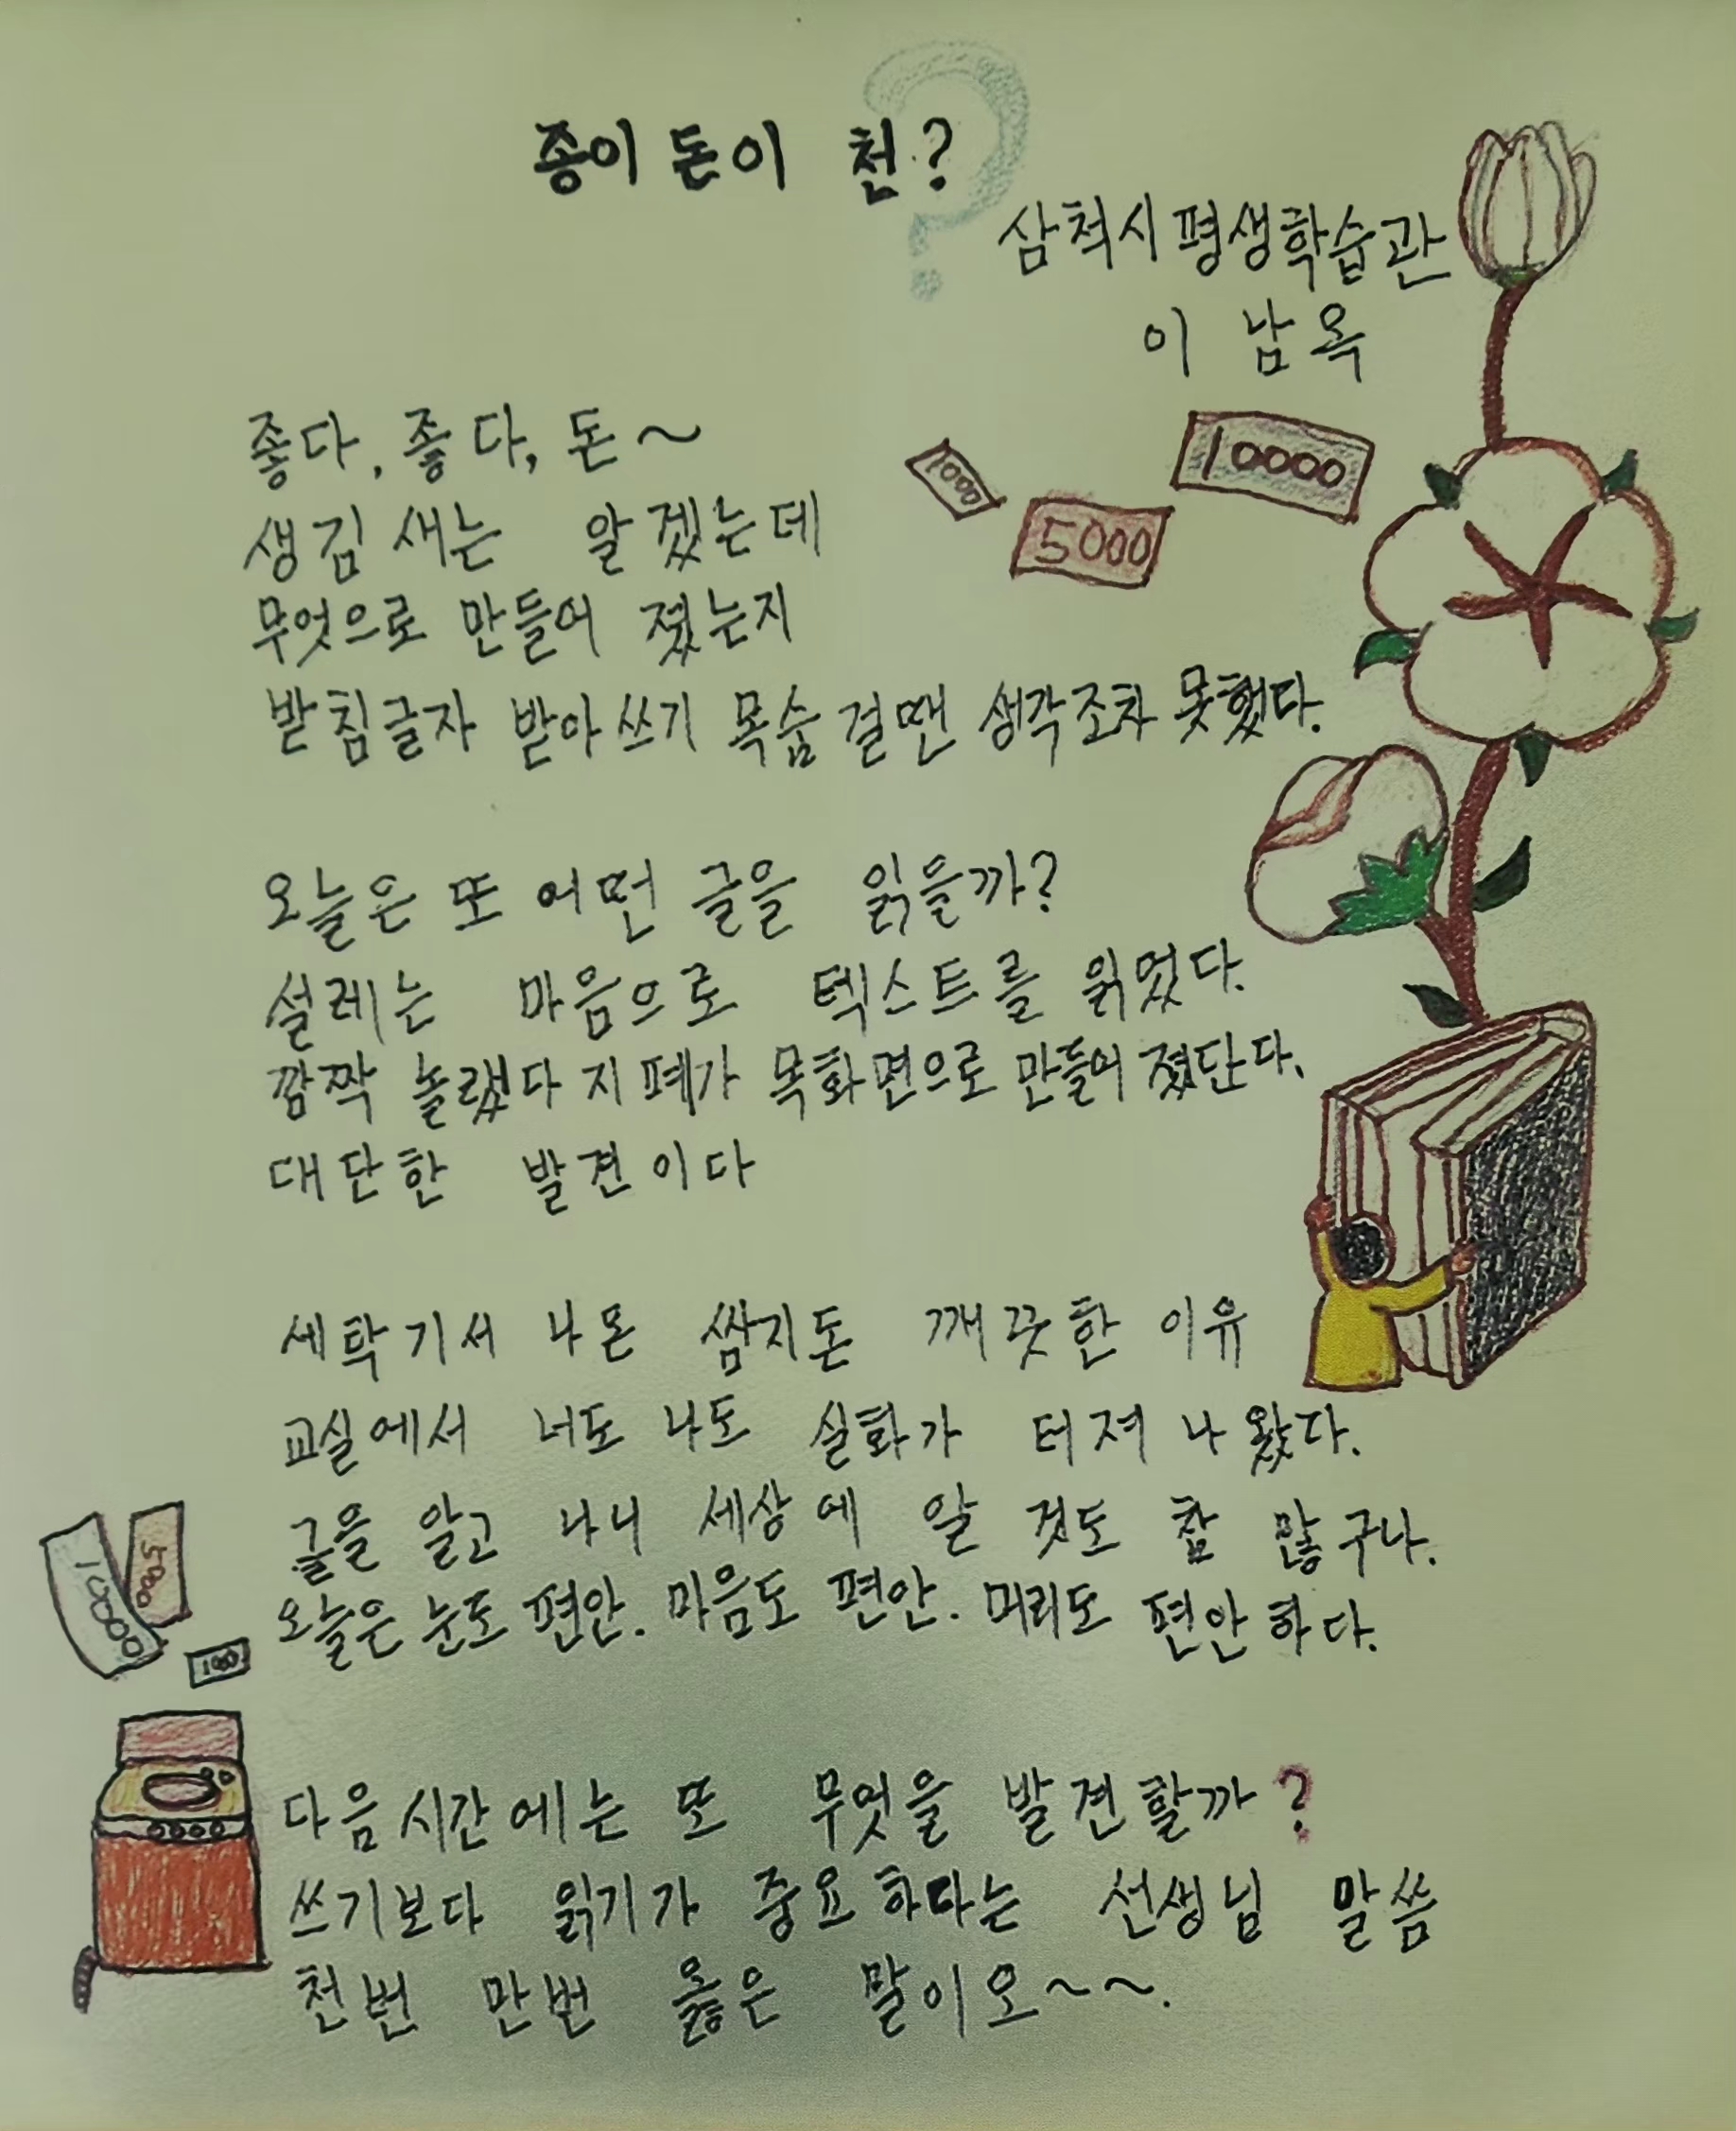 종이 돈이 천?
삼척시평생학습관
이 남옥
좋다, 좋다, 돈~
생김새는 알겠는데
무엇으로 만들어 졌는지
받침글자 받아쓰기 목숨 걸땐 생각조차 못했다.
1000
5000
10000
오늘은 또 어떤 글을 읽을까?
설레는 마음으로 텍스트를 읽었다.
깜짝 놀랬다 지폐가 목화면으로 만들어 졌단다.
대단한 발견이다
세탁기서 나온 쌈지돈 깨끗한 이유
교실에서 너도 나도 실화가 터져 나왔다.
글을 알고 나니 세상에 알 것도 참 많구나.
오늘은 눈도 편안. 마음도 편안. 머리도 편안하다.
10000
5000
다음시간에는 또 무엇을 발견할까?
쓰기보다 읽기가 중요하다는 선생님 말씀
천번 만번 옳은 말이오~~.